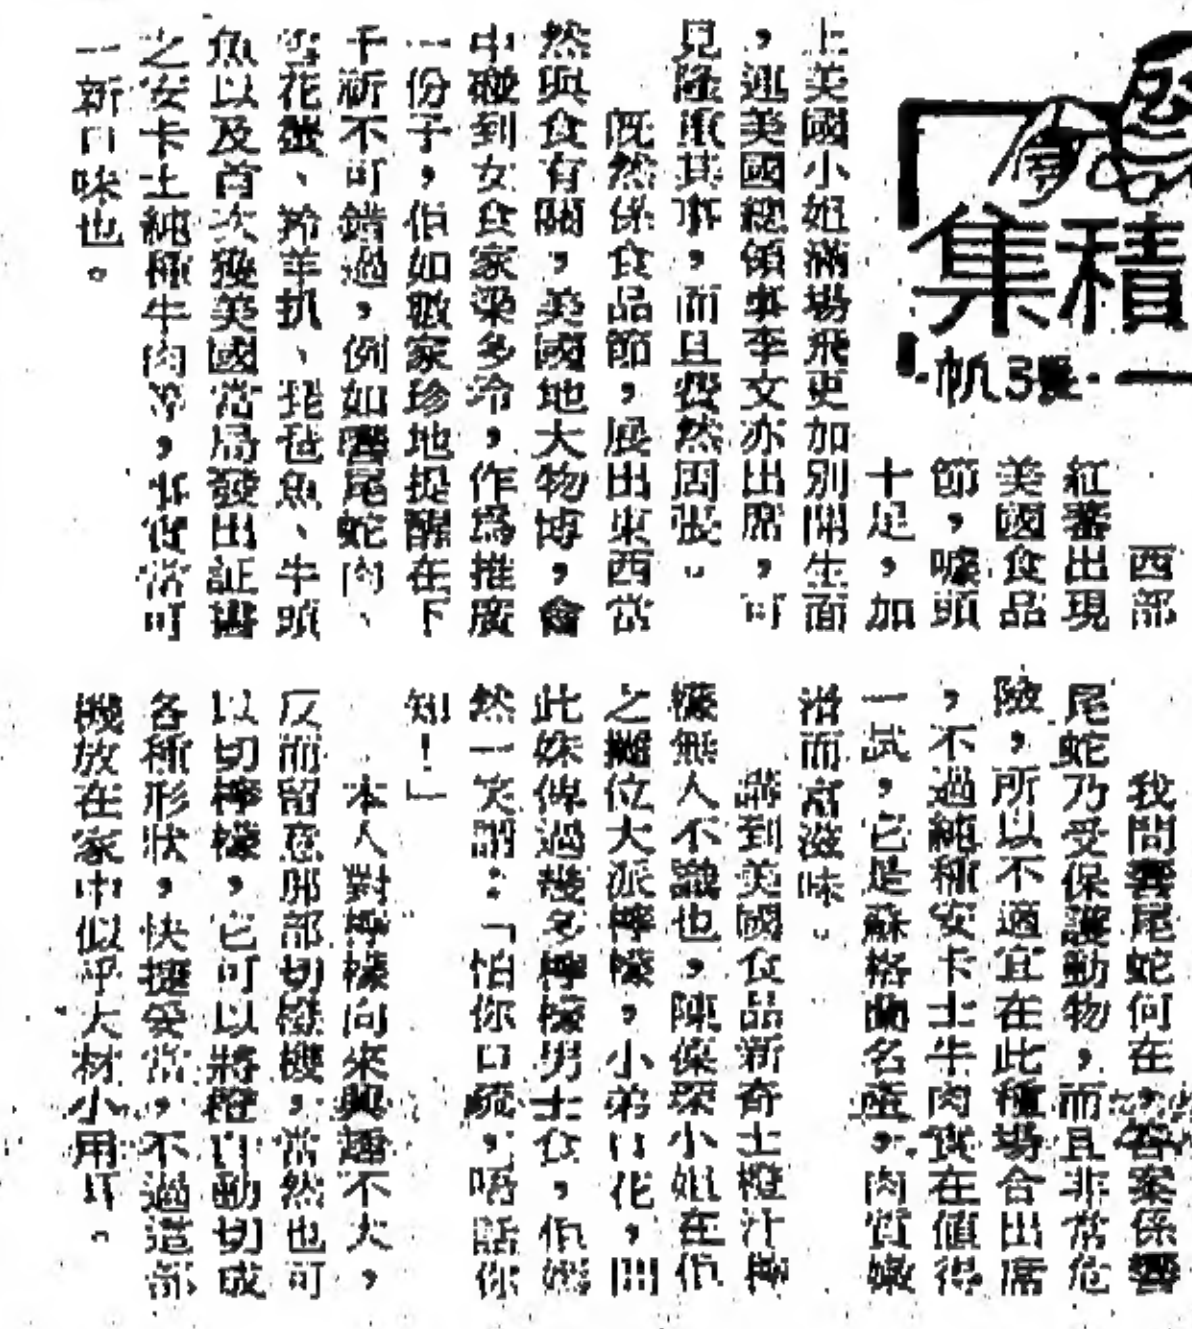 積
集
西部
紅蕃出現
美國食品
節，噱頭
十足，加
上美國小姐滿場飛更加別開生面
，連美國總領事李文亦出席，可
見隆重其事，而且費然周張。
既然係食品節，展出東西當
然與食有關，美國地大物博，會
中碰到女食家梁多泠，作爲推廣
一份子，佢如數家珍地提醒在下
千祈不可錯過，例如響尾蛇肉、
雪花蟹、羚羊扒、毯魚、牛頭
魚以及首次獲美國當局發出証書
之安卡士純種牛肉等，事實當可
一新口味也。
我問響尾蛇何在，答案係響
尾蛇乃受保護動物，而且非常危
險，所以不適宜在此種場合出席
，不過純種安卡士牛肉實在值得
一試，它是蘇格蘭名產，肉質嫩
滑而富滋味。
講到美國食品新奇士橙汁檸
檬無人不識也，陳傑琛小姐在佢
之攤位大派檸檬，小弟口花，問
此姝俾過幾多檸檬男士食，佢嫣
然一笑謂：「怕你口疏，唔話你
知！」
本人對檸檬向來興趣不大，
反而留意那部切橙機，當然也可
以切檸檬，它可以將橙自動切成
各種形狀，快捷妥當，不過這部
機放在家中似乎大材小用耳。